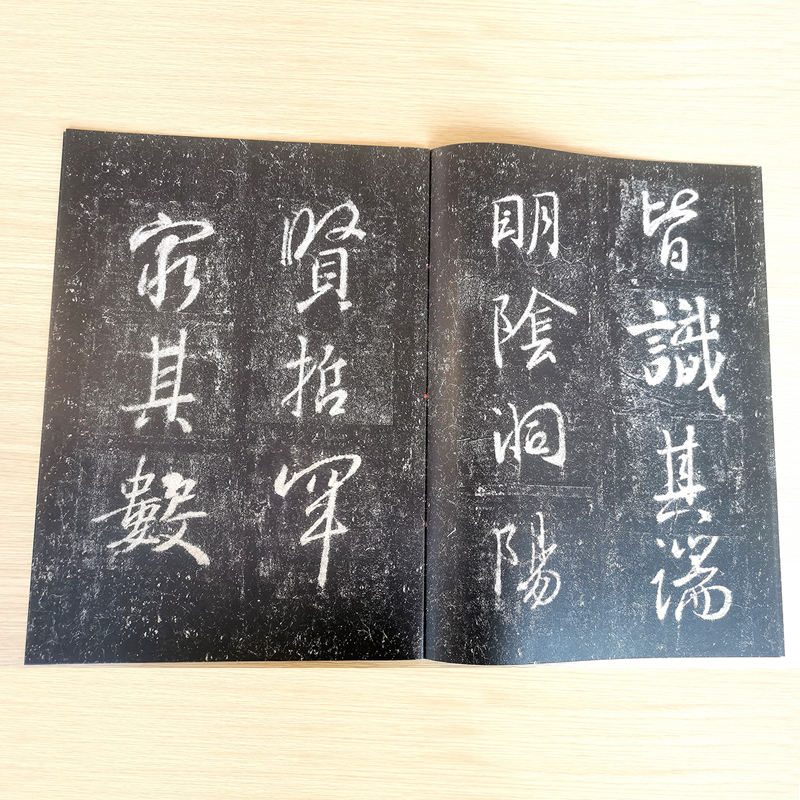 皆識其端
明陰洞陽
賢哲罕
窮其數